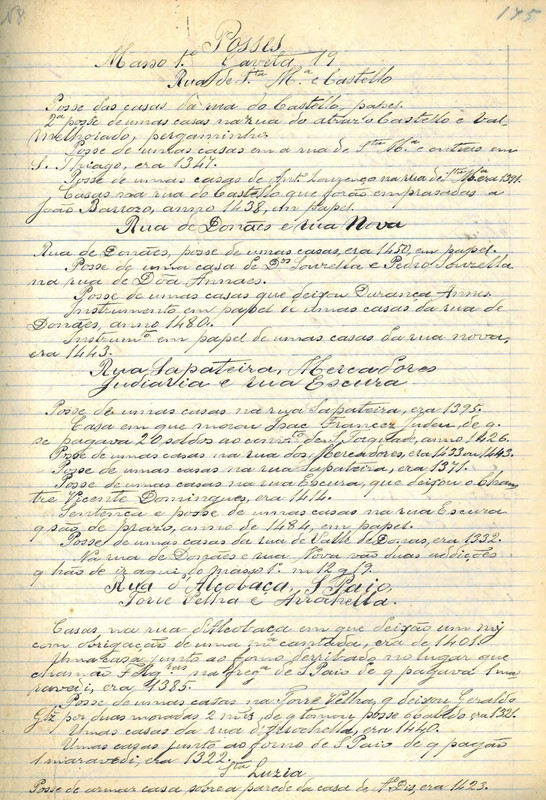 175
Posses
Masso 1.º Gaveta 19
Rua de S.ta M.a e Castello
Posse das casas da rua do Castello, papel.
2ª posse de umas casas na rua do atraz o Castello e Val
melhorado, pergaminho.
Posse de umas casas em a rua de S.ta M.a e outras em
S. Thiago, era 1347.
Posse de umas casas de Ant. Lourenço na rua de S.ta M.a era 1371.
Casas na rua do Castello que forão emprasadas a
João Barrozo, anno 1438, em papel.
Rua de Donães e rua Nova
Rua de Donães, posse de umas casas, era 1450, em papel.
Posse de uma casa de D.os e Pedro
na rua de Dôa Annaes.
Posse de umas casas que deixou Durança Annes.
Instrumento em papel de umas casas da rua de
Donães, anno 1480.
Instrum.to em papel de umas casas da rua nova,
era 1443.
Rua Sapateira, Mercadores
Judiaria e rua Escura
Posse de umas casas na rua Sapateira, era 1395.
Casa em que morou Isac Francez Judeu, de q.
se pagava 20 soldos ao de S. anno 1426.
Posse de umas casas na rua dos Mercadores, era 1433 ou 1443.
Posse de umas casas na rua Sapateira, era 1371.
Posse de umas casas na rua Escura, que deixou o Chan-
tre Vicente Domingues, era 1414.
Sentença e posse de umas casas na rua Escura
q são de prazo, anno de 1484, em papel.
Posse de umas casas da rua de Valle de Donas, era 1332.
Na rua de Donães e rua Nova vão duas addições
q hão de ir aqui, do masso 1.º n 12 g 19.
Rua d'Alcobaça, S Paio,
Torre Velha e Arrochella.
Casas na rua d'Alcobaça em que deixão um
com obrigação de uma m.a cantada, era de 1401.
Uma casa junto ao forno derribado no lugar que
chamão na freg.a de S. Paio de q pagava 1 ma
ravedi, era 1385.
Posse de umas casas na Torre Velha, q deixou Geraldo
Glz por duas moradas de q tomou posse o Cabido, era
Umas casas da rua d'Arrochella, era 1440.
Umas casas junto ao forno de S Paio de q pagão
1 maravedi, era 1322.
S.ta Luzia
Posse de armar casa sobre a parede da casa de era 1423.